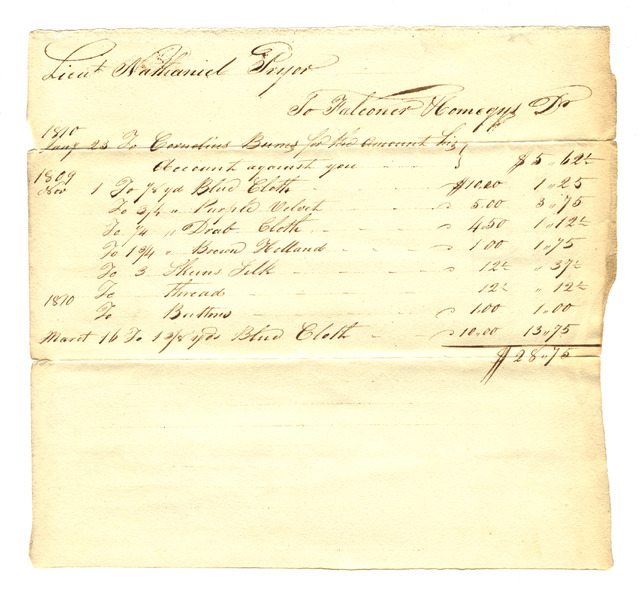 Lieut Nathaniel Pryor
To Falconer & Comegys Dr
1810
Jany 23 To Cornelius Burns for the amount his
Account against you - - - - $5 "62½
1809
Nov 1 To 1/8 yd Blue Cloth - - $10.00 1 "25
To 3/4 " Purple Velvet - - 5.00 3 "75
To 1/4 " Drab Cloth - - 4.50 1 "12½
To 1 3/4 " Brown Holland - - 1.00 1 "75
To 3 Skeins Silk - - 12½ "37½
To thread - - 12½ "12½
1810
To Buttons - - 1.00 1 "00
March 16 To 1 3/8 yds Blue Cloth - 10.00 13 "75
$28 "75